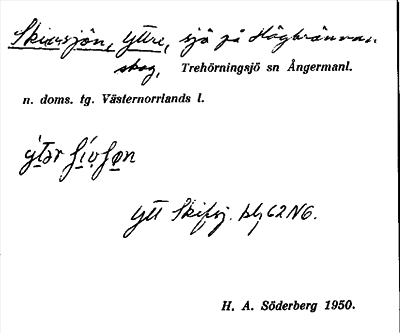 Skivsjön, Yttre, sjö på Högbrännans
skog, Trehörningsjö sn Ångermanl.
n. doms. tg. Västernorrlands l.
Ytt Skifsj. blz 62 N6.
H. A. Söderberg 1950.